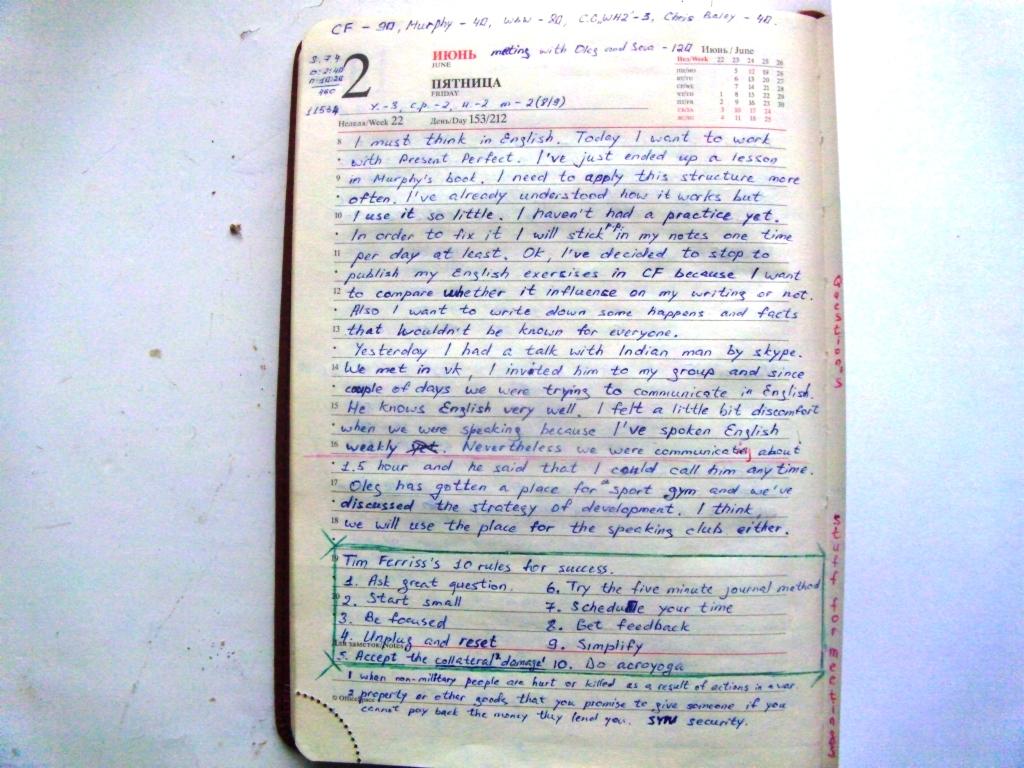 CF - 90, Murphy - 40, WhW - 80, C.C,WH2 - 3, Chris Baley - 40.
2
ИЮНЬ
JUNE
meeting with Oleg and Seva - 120
Июнь / June
ПЯТНИЦА
FRIDAY
Нед/Week 22 23 24 25 26
ПН/MO 5 12 19 26
ВТ/TU 6 13 20 27
СР/WE 7 14 21 28
ЧТ/TH 1 8 15 22 29
ПТ/FR 2 9 16 23 30
СБ/SA 3 10 17 24
ВС/SU 4 11 18 25
У.-3, с.р.-2, и.-2 т-2(8/9)
Неделя/Week 22 День/Day 153/212
8 I must think in English. Today I want to work
with Present Perfect. I've just ended up a lesson
9 in Murphy's book. I need to apply this structure more
often. I've already understood how it works but
10 I use it so little. I haven't had a practice yet.
In order to fix it I will stick in my notes one time
11 per day at least. Ok, I've decided to stop to
publish my English exersises in CF because I want
12 to compare whether it influense on my writing or not.
Also I want to write down some happens and facts
13 that wouldn't be known for everyone.
Yesterday I had a talk with Indian man by skype.
14 We met in vk, I invited him to my group and since
couple of days we were trying to communicate in English.
15 He knows English very well. I felt a little bit discomfort
when we were speaking because I've spoken English
16 weakly. Nevertheless we were communicating about
1.5 hour and he said that I could call him any time.
17 Oleg has gotten a place for a sport gym and we've
discussed the strategy of development. I think,
18 we will use the place for the speaking club either.
19 Tim Ferriss's 10 rules for success.
1. Ask great question. 6. Try the five minute journal method
20 2. Start small 7. Schedule your time
3. Be focused 8. Get feedback
4. Unplug and reset 9. Simplify
Для заметок/Notes
5. Accept the collateral² damage¹ 10. Do acroyoga
1 when non-military people are hurt or killed as a result of actions in a war.
2 property or other goods that you promise to give someone if you
cannot pay back the money they lend you. SYN security.
© Officespace
Questions
stuff for meetings